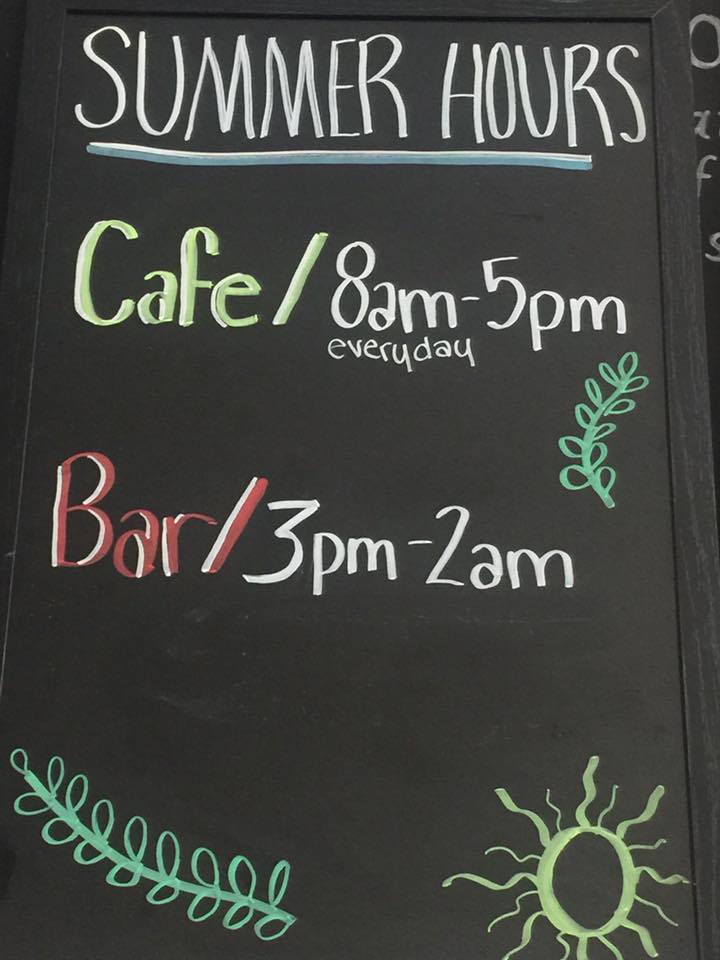 SUMMER HOURS
Cafe/8am-5pm
everyday
Bar/3pm-2am